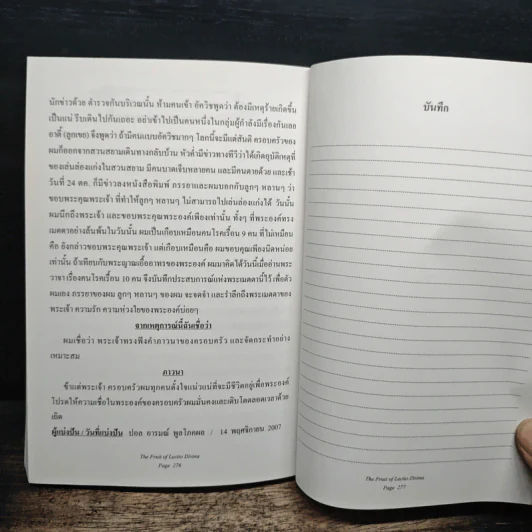 นักข่าวด้วย ตำรวจกันบริเวณนั้น ห้ามคนเข้า อัศวิชพูดว่า ต้องมีเหตุร้ายเกิดขึ้น
เป็นแน่ รีบเดินไปกันเถอะ อย่าเข้าไปเป็นคนหนึ่งในกลุ่มผู้กำลังมีเรื่องกันเลย
อาตี๋ (ลูกเขย) จึงพูดว่า ถ้ามีคนแบบอัศวิชมากๆ โลกนี้จะมีแต่สันติ ครอบครัวของ
ผมก็ออกจากสวนสยามเดินทางกลับบ้าน หัวค่ำมีข่าวทางทีวีว่าได้เกิดอุบัติเหตุที่
ของเล่นล่องแก่งในสวนสยาม มีคนบาดเจ็บหลายคน และมีคนตายด้วย และเช้า
วันที่ 24 ตค. ก็มีข่าวลงหนังสือพิมพ์ ภรรยาและผมบอกกับลูกๆ หลานๆ ว่า
ขอบพระคุณพระเจ้า ที่ทำให้ลูกๆ หลานๆ ไม่สามารถไปเล่นล่องแก่งได้ วันนั้น
ผมนึกถึงพระเจ้า และขอบพระคุณพระองค์เพียงเท่านั้น ทั้งๆ ที่พระองค์ทรง
เมตตาอย่างล้นพ้นในวันนั้น ผมเป็นเกือบเหมือนคนโรคเรื้อน 9 คน ที่ไม่เหมือน
คือ ยังกล่าวขอบพระคุณพระเจ้า แต่เกือบเหมือนคือ ผมขอบคุณเพียงนิดหน่อย
เท่านั้น ถ้าเทียบกับพระญาณเอื้ออาทรของพระองค์ ผมมาคิดได้วันนี้เมื่ออ่านพระ
วาจา เรื่องคนโรคเรื้อน 10 คน จึงบันทึกประสบการณ์แห่งพระเมตตานี้ไว้ เพื่อตัว
ผมเอง ภรรยาของผม ลูกๆ หลานๆ ของผม จะจดจำ และรำลึกถึงพระเมตตาของ
พระเจ้า ความรัก ความห่วงใยของพระองค์บ่อยๆ
จากเหตุการณ์นี้ฉันเชื่อว่า
ผมเชื่อว่า พระเจ้าทรงฟังคำภาวนาของครอบครัว และจัดกระทำอย่าง
เหมาะสม
ภาวนา
ข้าแต่พระเจ้า ครอบครัวผมทุกคนตั้งใจแน่วแน่ที่จะมีชีวิตอยู่เพื่อพระองค์
โปรดให้ความเชื่อในพระองค์ของครอบครัวผมมั่นคงและเติบโตตลอดเวลาด้วย
เถิด
ผู้แบ่งปัน / วันที่แบ่งปัน ปอล อารมณ์ พูลโภคผล / 14 พฤศจิกายน 2007
The Fruit of Lectio Divina
Page 276
บันทึก
The Fruit of Lectio Divina
Page 277